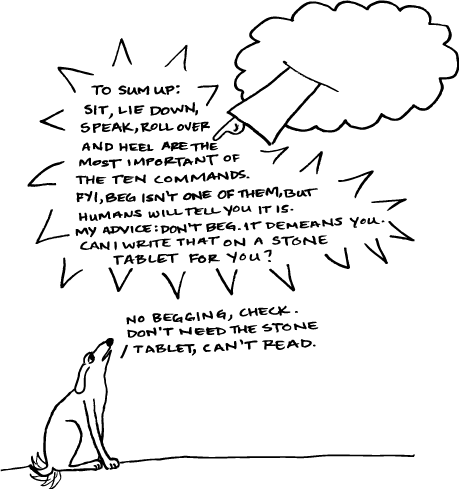 TO SUM UP:
SIT, LIE DOWN,
SPEAK, ROLL OVER
AND HEEL ARE THE
MOST IMPORTANT OF
THE TEN COMMANDS.
FYI, BEG ISN'T ONE OF THEM, BUT
HUMANS WILL TELL YOU IT IS.
MY ADVICE: DON'T BEG. IT DEMEANS YOU.
CAN I WRITE THAT ON A STONE
TABLET FOR YOU?
NO BEGGING, CHECK.
DON'T NEED THE STONE
TABLET, CAN'T READ.